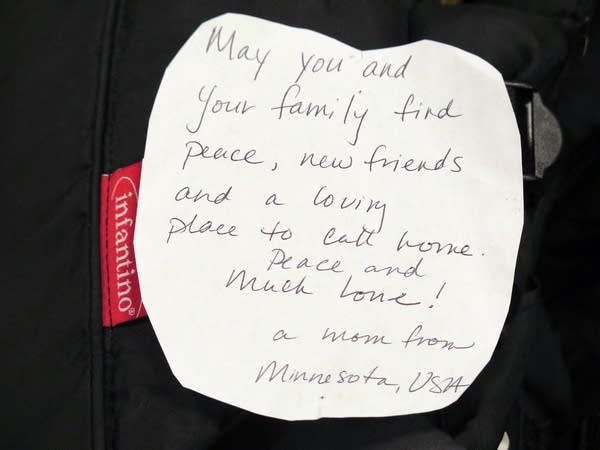 May you and
your family find
peace, new friends
and a loving
place to call home.
Peace and
much love!
a mom from
Minnesota, USA
infantino®